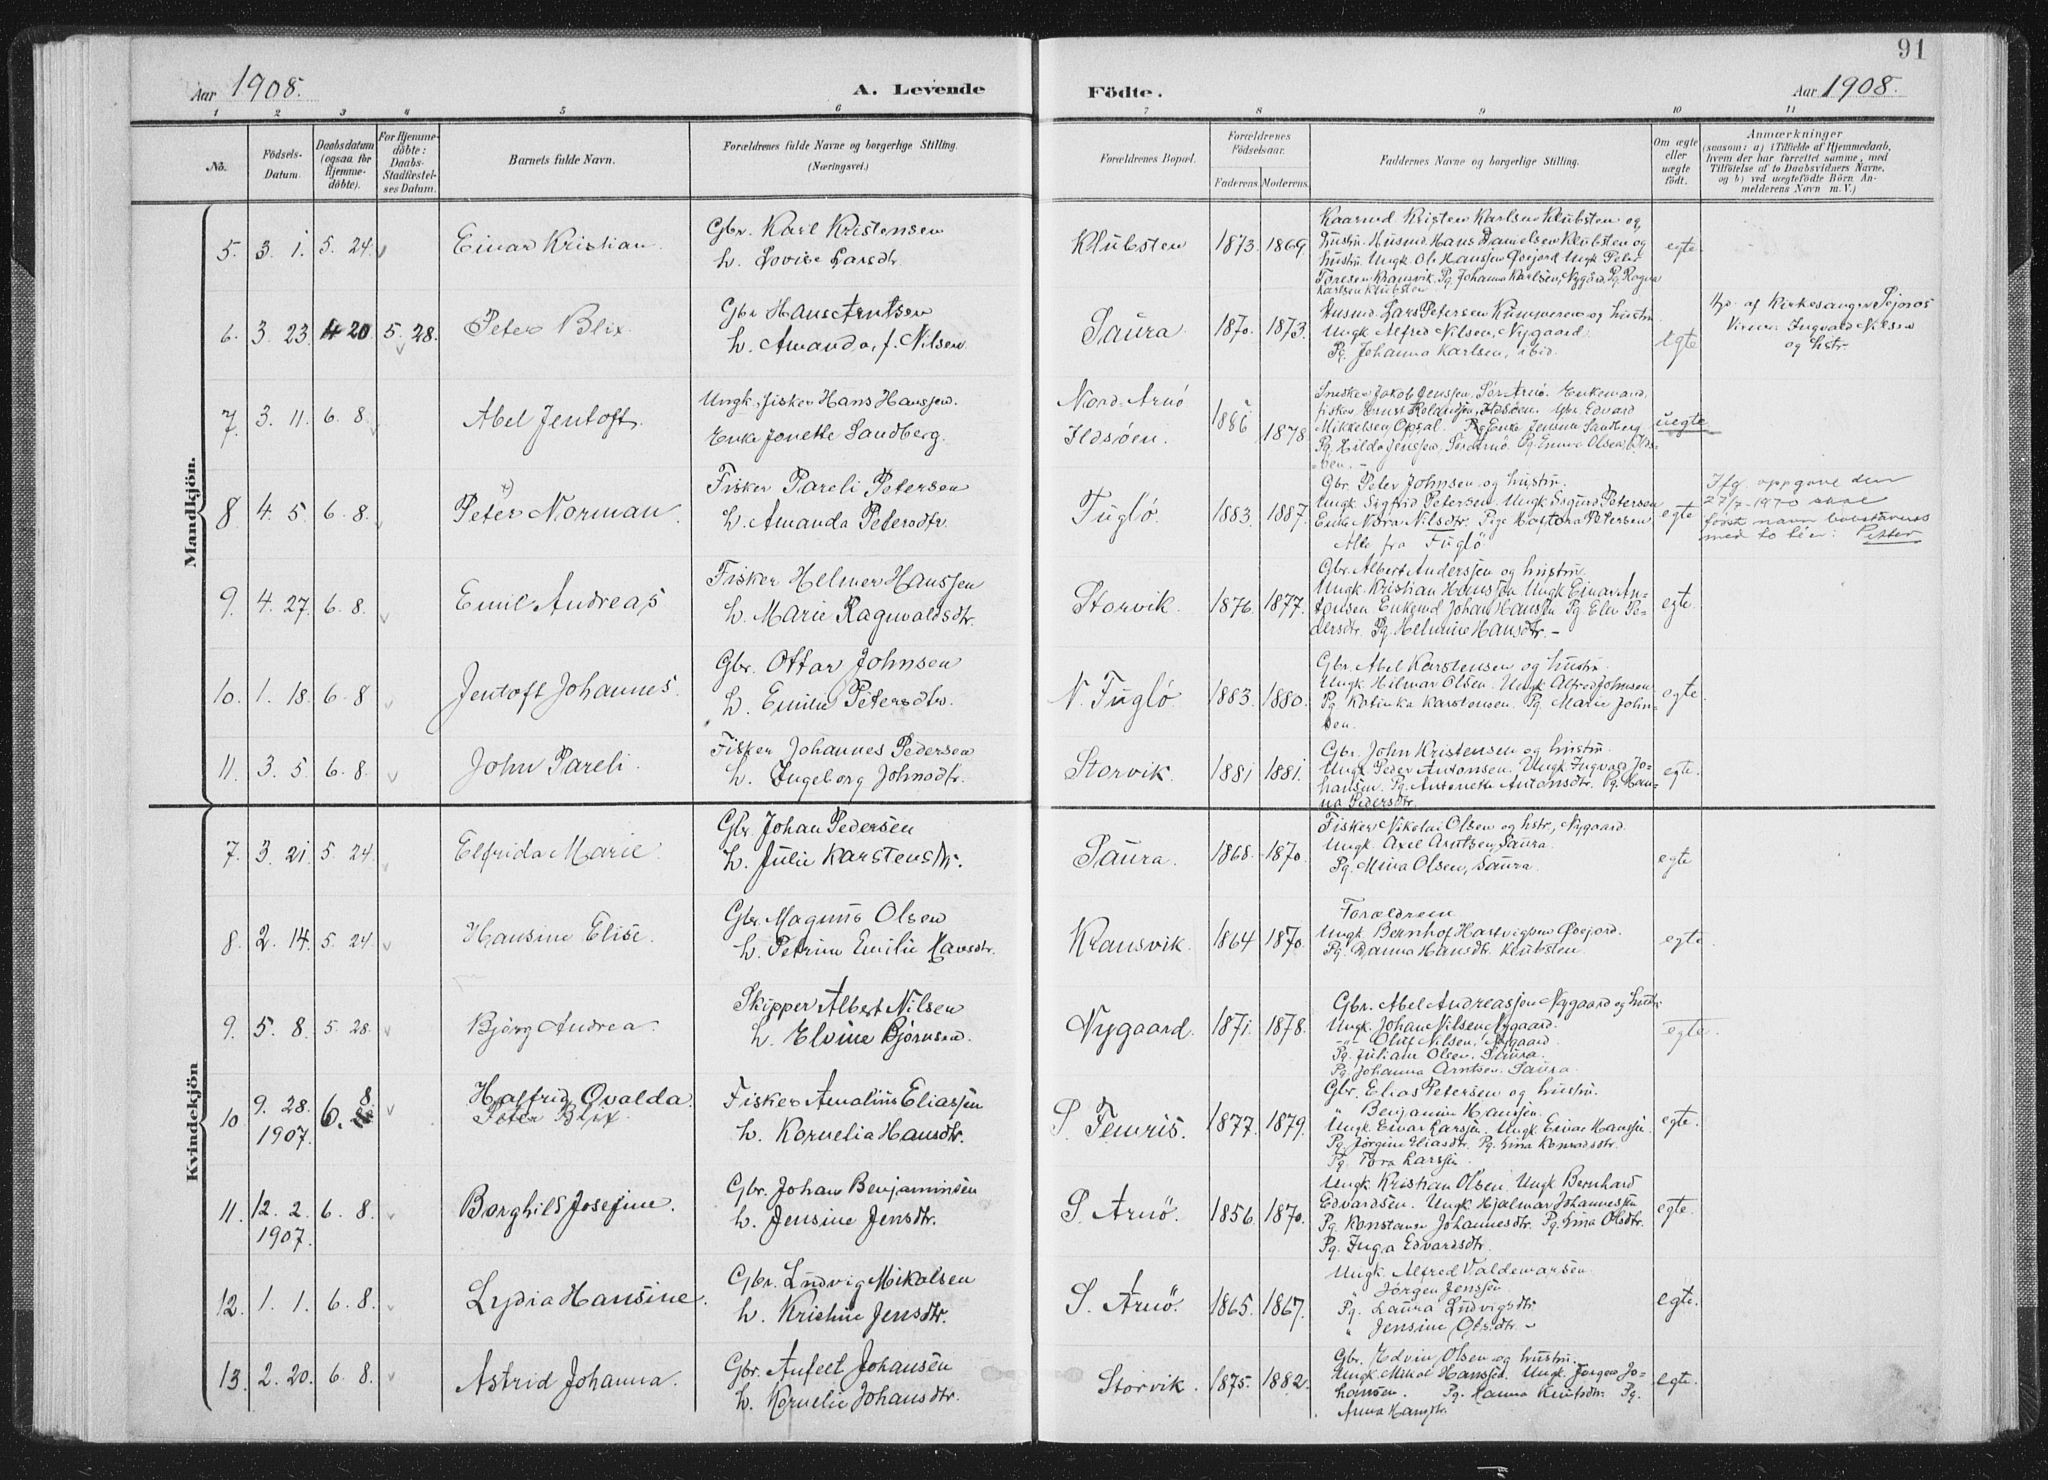 91
Aar 1908.
A. Levende
Födte.
Aar 1908.
1 2 3 4 5 6 7 8 9 10 11
No.
Födsels-
Datum.
Daabsdatum
(ogsaa for
Hjemme-
döbte).
For Hjemme-
döbte:
Daabs-
Stadfæstel-
ses Datum.
Barnets fulde Navn.
Forældrenes fulde Navne og borgerlige Stilling.
(Næringsvei.)
Forældrenes Bopæl.
Forældrenes
Födselsaar.
Faderens. Moderens.
Faddernes Navne og borgerlige Stilling.
Om ægte
eller
uægte
födt.
Anmærkninger
(saasom: a) i Tilfælde af Hjemmedaab,
hvem der har forrettet samme, med
Tilföielse af to Daabsvidners Navne,
og b) ved uægtefödte Börn An-
melderens Navn m. V.)
Mandkjön.
5. 3. 1. 5. 24. Einar Kristian.
Gbr. Karl Kristensen
h. Lovise Larsdtr
Klubsten 1873. 1869.
Kaarmd. Kristen Karlsen Klubsten og
hustru. Husmd. Hans Danielsen Klubsten og
hustru. Ungk. Ole Hanssen Øvejord Ungk Peter
Toresen Kransvik. Pg. Johanna Karlsen, Nygård, Pg. Ragna
Karlsen Klubsten
egte
6. 3. 23. 4 20 5. 28. Peter Blix.
Gbr Hans Arntsen
h. Amanda, f. Nilsen
Saura 1870. 1873.
Husmd. Lars Petersen Kummeren og hustru.
Ungk. Alfred Nilsen, Nygaard.
Pg. Johanna Karlsen, ibid.
egte
Hjd. af Kirkesanger Sejnæs
Vidner: Ingvald Nilsen
og hstr.
7. 3. 11. 6. 8. Abel Jentoft.
Ungk. fisker Hans Hanssen.
Enke Jonette Sandberg.
Nord-Arnö
Ildsøen. 1886 1878.
Snekker Jakob Jenssen, Sör Arnö. Enkemand,
fisker Ernst Rolandsen, Ildsøen. Gbr. Edvard
Mikkelsen Opsal. Enke Jensine Sandberg
Pg. Hilda Jenssen, Sörarnö. Pg. Emma Olsen, Ilds-
öen. -
uegte
8 4. 5. 6. 8. Peter Norman.
Fisker Pareli Petersen
h. Amanda Petersdtr.
Fuglö. 1883. 1887.
Gbr. Peter Johnsen og hustru.
Ungk. Sigfrid Petersen. Ungk Sigurd Petersen
Enke Nora Nilsdtr. Pige Hartora Petersen
Alle fra Fuglö
egte
Ifg. oppgave den
27/7-1970 skal
først navn bokstaveres
med to t'er: Petter
9. 4. 27. 6. 8. Emil Andreas
Fisker Helmer Hanssen
h. Marie Ragnvaldsdtr.
Storvik. 1876. 1877.
Gbr. Albert Anderssen og hustru.
Ungk Kristian Hanssen Ungk Einar An-
tonsen Enkemd Johan Hansen Pg Elen Pe-
dersdtr. Pg. Helmine Hansdtr. -
egte.
10. 1. 18. 6. 8 Jentoft Johannes.
Gbr. Ottar Johnsen
h. Emilie Petersdtr.
N. Fuglö 1883. 1880.
Gbr. Abel Karstensen og hustru.
Ungk. Hilmar Olsen. Ungk Alfred Johnsen.
Pg. Katinka Karstensen. Pg. Marie John-
sen.
egte.
11. 3. 5. 6. 8. John Pareli.
Fisker Johannes Pedersen
h. Ingeborg Johnsdtr.
Storvik. 1881 1881.
Gbr. John Kristensen og hustru.
Ungk Peder Antonsen. Ungk Ingvald Jo-
hansen. Pg. Antonette Antonsdtr. Pg. Han-
na Pedersdtr.
egte.
Kvindekjön
7. 3. 21. 5. 24. Elfrida Marie.
Gbr. Johan Pedersen
h. Julie Karstensdtr.
Saura. 1868. 1870.
Fisker Nikolai Olsen og hstr, Nygaard.
Ungk. Axel Arntsen, Saura.
Pg. Mina Olsen, Saura.
egte
8. 2. 14. 5. 24. Hansine Elise.
Gbr. Magnus Olsen
h. Petrine Emilie Hansdtr.
Kransvik. 1864 1870.
Forældrene
Ungk. Bernhof Hartvigsen Øvejord.
Pg. Danna Hansdtr. Klubsten.
egte.
9. 5. 8. 5. 28. Bjørg Andrea.
Skipper Albert Nilsen
h. Elvine Bjørnsen.
Nygaard. 1871. 1878.
Gbr. Abel Andreassen Nygaard og hustr.
Ungk. Johan Nilsen Nygaard.
-"- Oluf Nilsen. Nygaard.
Pg. Juliane Olsen. Saura.
Pg. Johanna Arntsen. Saura.
egte.
10 9. 28. 1907. 6. 8. Halfrid Ovalda.
Peter Blix.
Fisker Amalius Eliassen
h. Kornelia Hansdtr.
S. Femris. 1877. 1879.
Gbr. Elias Petersen og hustru.
" Benjamin Hanssen.
Ungk. Einar Larssen. Ungk. Einar Hanssen.
Pg. Jörgine Eliasdtr. Pg. Lina Konradsdtr.
Pg. Tora Larssen.
egte.
11. 12. 2. 1907. 6. 8. Borghild Josefine.
Gbr. Johan Benjaminsen
h. Jensine Jensdtr.
S. Arnö. 1856. 1870.
Ungk. Kristian Olsen. Ungk Bernhard
Edvardsen. Ungk. Hjalmar Johannessen
Pg. Konstanse Johannesdtr. Pg. Lina Olsdtr.
Pg. Inga Edvardsdtr.
egte.
12. 1. 1. 6. 8. Lydia Hansine.
Gbr. Ludvig Mikalsen
h. Kristine Jensdtr.
S. Arnö. 1865. 1867.
Ungk. Alfred Valdemarsen.
" Jörgen Jenssen
Pg. Laura Ludvigsdtr
" Jensine Olsdtr. -
egte.
13. 2. 20. 6. 8. Astrid Johanna.
Gbr. Anfelt Johansen
h. Kornelie Johansdtr.
Storvik. 1875. 1882.
Gbr. Edvin Olsen og hustru.
Ungk. Mikal Hanssen. Ungk. Jörgen Jo-
hansen. Pg. Hanna Knutsdtr. Pg.
Anna Hansdtr.
egte.